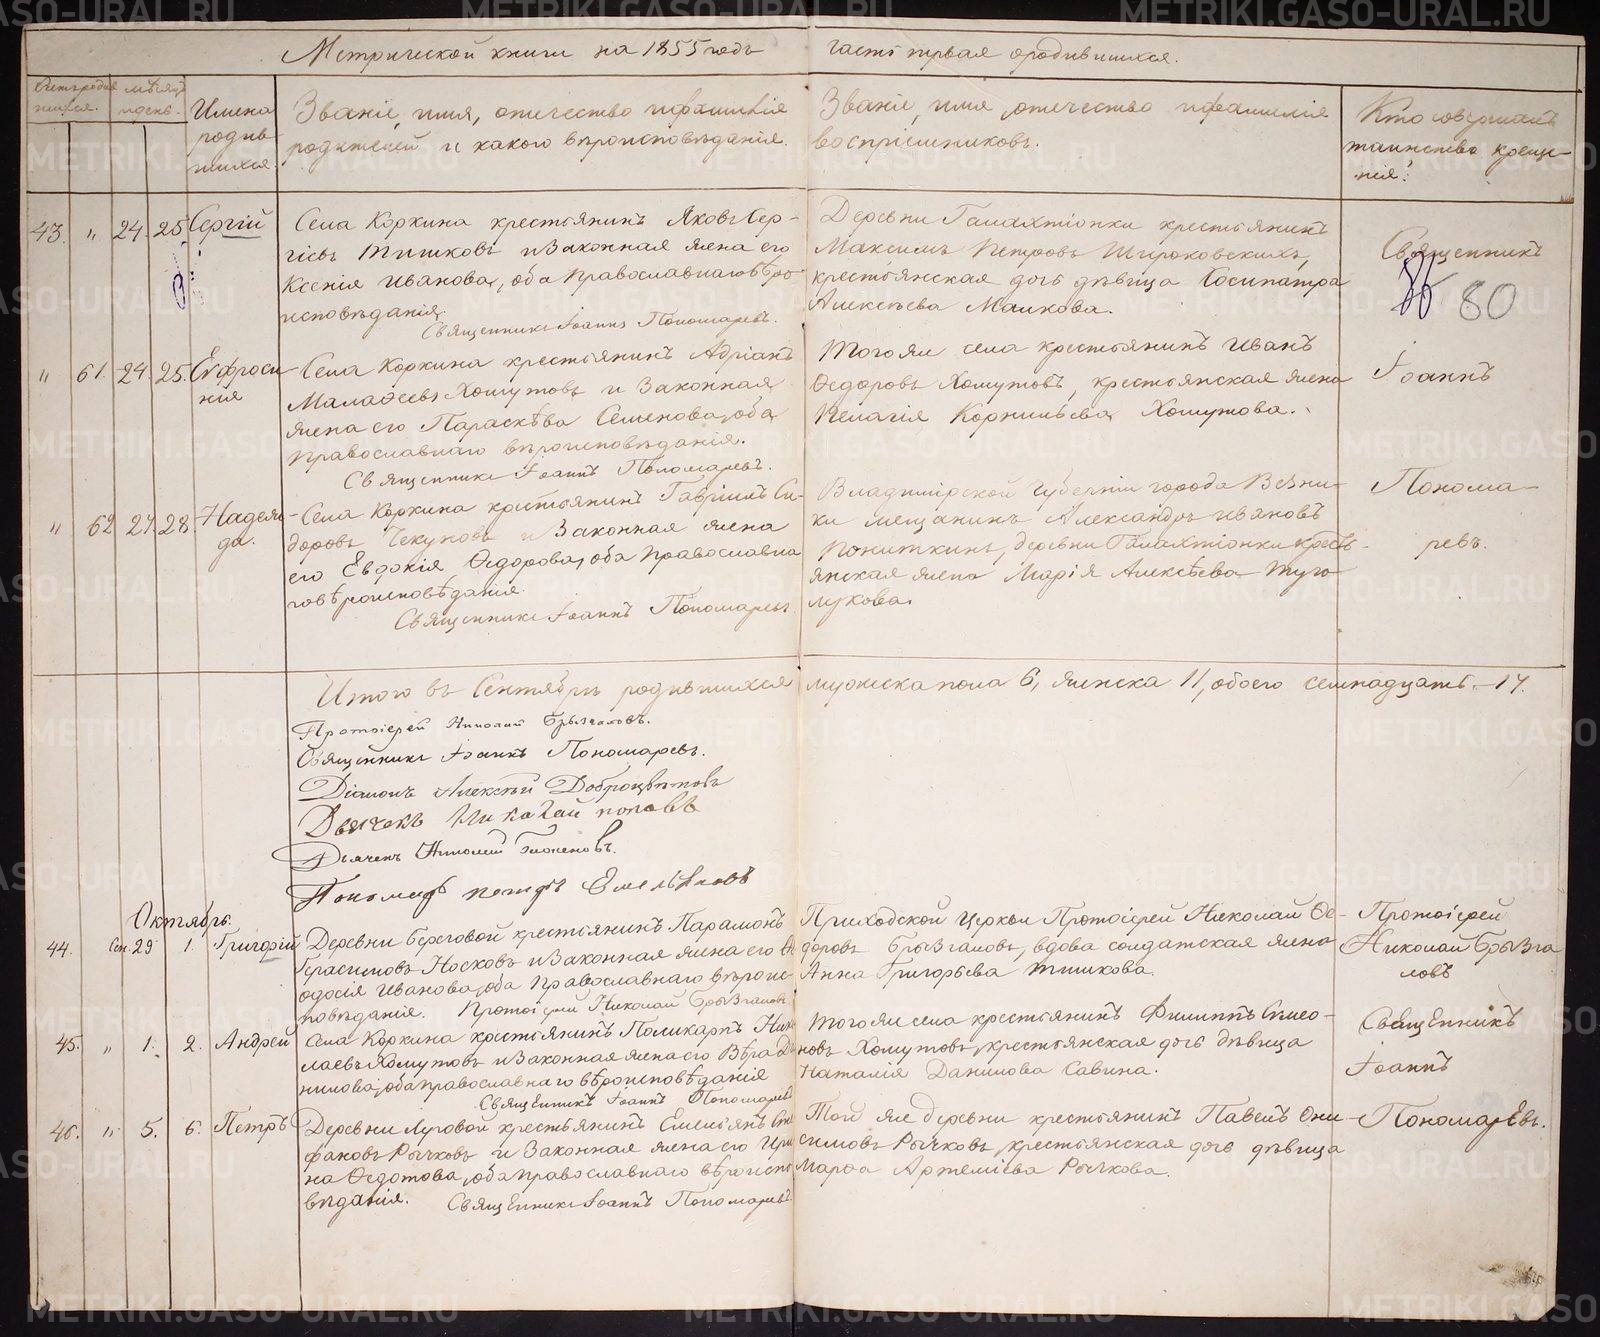 Метрической книги на 1855 годъ часть первая о родившихся.
Счетъ родив-
шихся.
мѣсяцъ
и день.
Имена
родив-
шихся
Званіе, имя, отчество и фамилія
родителей и какого вѣроисповѣданія.
Званіе, имя, отчество и фамилія
воспріемниковъ.
Кто совершалъ
таинство креще-
нія?
43. " 24. 25. Сергій
Села Коркина крестьянинъ Яковъ Сер-
гіевъ Тишковъ и Законная жена его
Ксенія Иванова, оба Православнаго вѣро-
исповѣданія.
Священникъ Іоаннъ Пономаревъ.
Деревни Галахтіонки крестьянинъ
Максимъ Петровъ Широковскихъ,
крестьянская дочь дѣвица Сосипатра
Алексѣева Малкова.
Священникъ
80
" 61. 24. 25. Евфроси-
нія
Села Коркина крестьянинъ Адріанъ
Маладеевъ Хомутовъ и Законная
жена его Параскѣва Семенова, оба
Православнаго вѣроисповѣданія.
Священникъ Іоаннъ Пономаревъ.
Того же села крестьянинъ Иванъ
Ѳедоровъ Хомутовъ, крестьянская жена
Пелагія Корнильева Хомутова.
Іоаннъ
" 62 27. 28. Надеж-
да.
Села Коркина крестьянинъ Гавріилъ Си-
доровъ Чекуновъ и Законная жена
его Евдокія Ѳедорова, оба Православна
го вѣроисповѣданія.
Священникъ Іоаннъ Пономаревъ
Владимірской Губерніи города Вязни-
ки мещанинъ Александръ Ивановъ
Пониткинъ, деревни Галахтіонки кресть-
янская жена Марія Алексѣева Туго
лукова.
Понома-
ревъ.
Итого въ Сентябрѣ родившихся мужеска пола 6, женска 11, обоего семнадцать.-17.
Протоіерей Николай Брызгаловъ.
Священникъ Іоаннъ Пономаревъ.
Діаконъ Алексѣй Доброцвѣтовъ
Дьячекъ Николай поповъ
Дьячекъ Николай
Пономарь петръ Емельяновъ
Октябрь.
44. Сен. 29 1. Григорій
Деревни Береговой крестьянинъ Парамонъ
Герасимовъ Носковъ и Законная жена его Ѳе
одосія Иванова, оба Православнаго вѣроис-
повѣданія. Протоіерей Николай Брызгаловъ
Приходской Церкви Протоіерей Николай Ѳе-
доровъ Брызгаловъ, вдова солдатская жена
Анна Григорьева Тишкова.
Протоіерей
Николай Брызга
ловъ
45. " 1. 2. Андрей
Села Коркина крестьянинъ Поликарпъ Нико
лаевъ Хомутовъ и Законная жена его Вѣра Да
нилова, оба православнаго вѣроисповѣданія
Священникъ Іоаннъ Пономаревъ
Того же села крестьянинъ Филиппъ Симео-
новъ Хомутовъ, крестьянская дочь дѣвица
Наталія Данилова Савина.
Священникъ
Іоаннъ
46. " 5. 6. Петръ
Деревни Луговой крестьянинъ Емельянъ Сте
фановъ Рычковъ и Законная жена его Ири
на Ѳедотова, оба православнаго вѣроиспо
вѣданія. Священникъ Іоаннъ Пономаревъ
Той же деревни крестьянинъ Павелъ Они-
симовъ Рычковъ, крестьянская дочь дѣвица
Марѳа Артеміева Рычкова.
Пономаревъ.